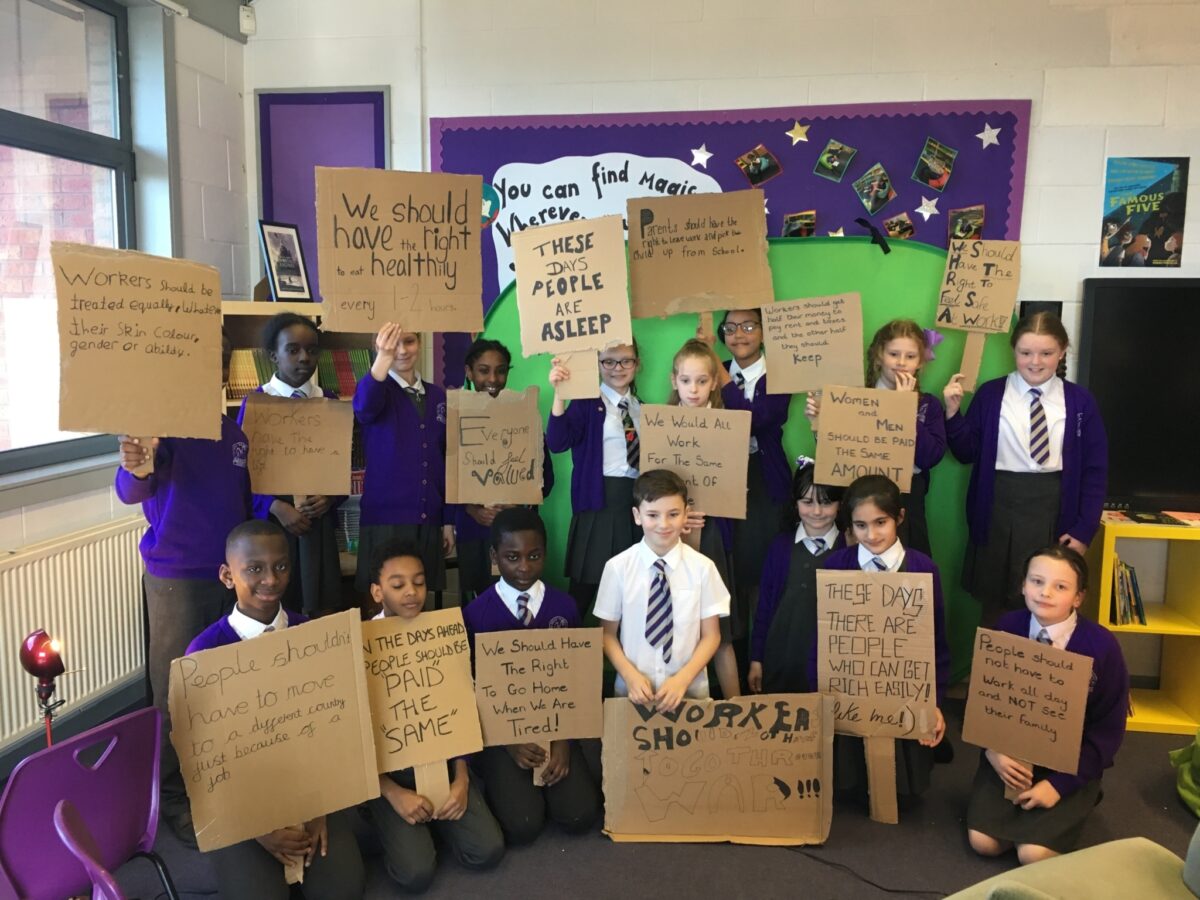 You can find Magic
Wherever
FAMOUS
FIVE
We should
have the right
to eat healthily
every 1-2 hours.
THESE
DAYS
PEOPLE
ARE
ASLEEP
Parents should have the
right to leave work and pick their
child up from School.
We Should
Have The
Right To
Feel Safe
At Work!
Workers Should be
treated equally, whatever
their Skin colour,
gender or ability.
Workers should get
half their money to
pay rent and taxes
and the other half
they should
Keep
Workers
have The
right to have a
Everyone
Should feel
Valued
We Would All
Work
For The Same
Of
WOMEN
and
MEN
SHOULD BE PAID
THE SAME
AMOUNT
People shouldn't
have to move
to a different country
just because of a
job
IN THE DAYS AHEAD
PEOPLE SHOULD BE
"PAID"
THE
"SAME"
We Should Have
The Right
To Go Home
When We Are
Tired!
WORKER
SHOULDN'T HAVE
TO GO THR
WAR!!!
THESE DAYS
THERE ARE
PEOPLE
WHO CAN GET
RICH EASILY!
(like me!)
People should
not have to
Work all day
and NOT see
their family